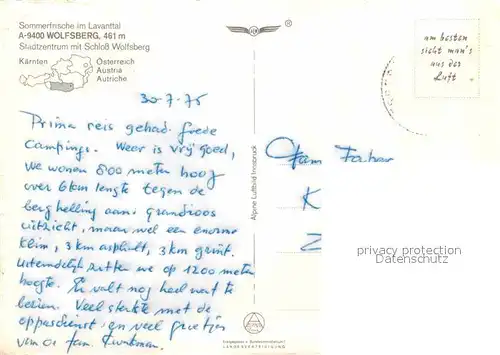 Sommerfrische im Lavanttal
A-9400 WOLFSBERG, 461 m
Stadtzentrum mit Schloß Wolfsberg
Kärnten
Österreich
Austria
Autriche
®
am besten
sieht man's
aus der
Luft
30-7-75
Prima reis gehad. Goede
Campings. Weer is vrij goed,
we wonen 800 meter hoog
over 6 km lengte tegen de
berghelling aan. Grandioos
uitzicht, maar wel een enorme
klim, 3 km asphalt, 3 km grint.
Uiteindelijk zitten we op 1200 meter
hoogte. Er valt nog heel wat te
Veel sterkte met de
oppasdienst en veel groetjes
van de fam.
Fam
K
Z
Alpine Luftbild Innsbruck
privacy protection
Datenschutz
LANDESVEREINIGUNG